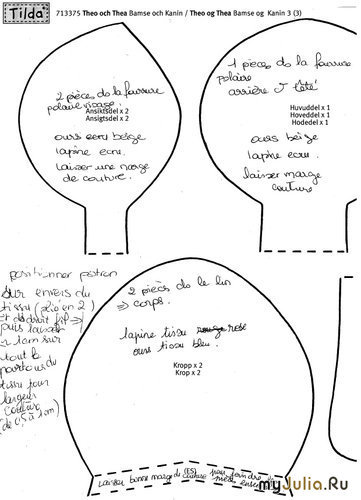 Tilda
713375 Theo och Thea Bamse och Kanin / Theo og Thea Bamse og Kanin 3 (3)
2 pièces de la fourrure
polaire visage.
Ansiktsdel x 2
Ansigtsdel x 2
ours ecru beige
lapine ecru.
laisser une marge
de couture.
1 pièces de la fourrure
polaire
arrière tête
Huvuddel x 1
Hoveddel x 1
Hodedel x 1
ours beige
lapine ecru.
laisser marge
couture
positionner patron
sur envers du
tissu (plié en 2)
Et droit fil
puis laisser
1 cm sur
tout le
pourtour du
tissu pour
largeur
couture
(de 0,5 à 1 cm)
2 pièces de le lin
⇒ corps.
lapine tissu rose
ours tissu bleu.
Kropp x 2
Krop x 2
Laisser bonne marge de couture (ES) pour joindre les
ensemble
myJulia.Ru